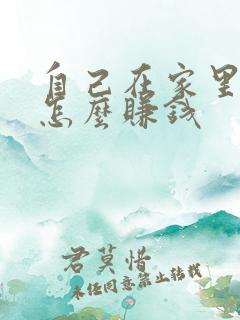 自己在家里
怎麼賺钱
君莫惜
未经同意禁止转载